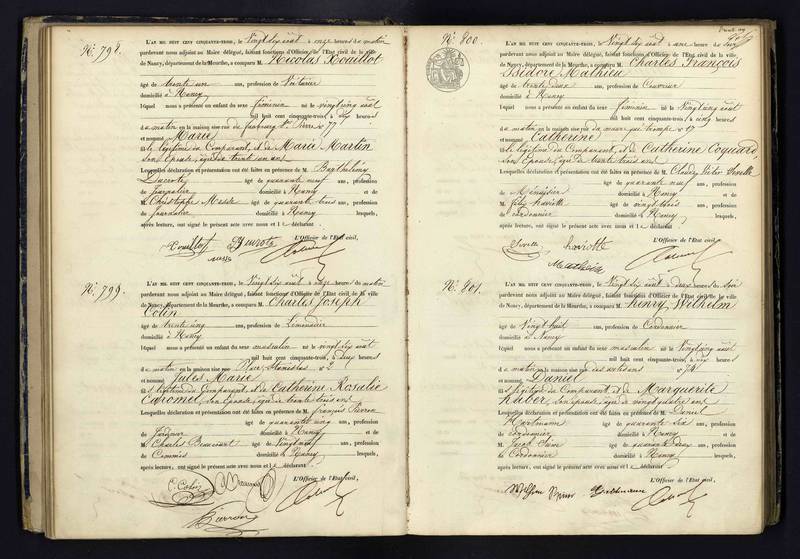 N.° 798.
L'AN MIL HUIT CENT CINQUANTE-TROIS, le Vingt six août, à onze heures du matin
pardevant nous adjoint au Maire délégué, faisant fonctions d'Officier de l'Etat civil de la ville
de Nancy, département de la Meurthe, a comparu M. Nicolas Rouillot
âgé de trente un ans, profession de Voiturier
domicilié à Nancy
lequel nous a présenté un enfant du sexe féminin né le vingt cinq août
mil huit cent cinquante-trois, à dix heures
du matin en la maison sise rue du faubourg St. Pierre n.° 77
et nommé Marie
fille légitime du Comparant, et de Marie Martin
son épouse, âgée de trente un ans
Lesquelles déclaration et présentation ont été faites en présence de M. Barthélémy
âgé de quarante neuf ans, profession
de Journalier domicilié à Nancy et de
M. Christophe âgé de quarante trois ans, profession
de Journalier domicilié à Nancy lesquels,
après lecture, ont signé le présent acte avec nous et le déclarant
L'Officier de l'Etat civil,
Rouillot
N.° 799.
L'AN MIL HUIT CENT CINQUANTE-TROIS, le Vingt six août, à onze heures du matin
pardevant nous adjoint au Maire délégué, faisant fonctions d'Officier de l'Etat civil de la ville
de Nancy, département de la Meurthe, a comparu M. Charles Joseph
Colin
âgé de trente cinq ans, profession de Limonadier
domicilié à Nancy
lequel nous a présenté un enfant du sexe masculin né le vingt six août
mil huit cent cinquante-trois, à deux heures
du matin en la maison sise Place Stanislas n.° 2
et nommé Jules Marie
fils légitime du Comparant, et de Catherine Rosalie
Caromel, son épouse, âgée de trente trois ans
Lesquelles déclaration et présentation ont été faites en présence de M. François Pierron
âgé de quarante cinq ans, profession
domicilié à Nancy et de
M. Charles âgé de Vingt neuf ans, profession
de Commis domicilié à Nancy lesquels,
après lecture, ont signé le présent acte avec nous et le déclarant
L'Officier de l'Etat civil,
C. Colin
Pierron
N.° 800.
L'AN MIL HUIT CENT CINQUANTE-TROIS, le Vingt six août, à une heure du soir
pardevant nous adjoint au Maire délégué, faisant fonctions d'Officier de l'Etat civil de la ville
de Nancy, département de la Meurthe, a comparu M. Charles François
Isidore Mathieu
âgé de trente deux ans, profession de Couvreur
domicilié à Nancy
lequel nous a présenté un enfant du sexe féminin né le Vingt cinq août
mil huit cent cinquante-trois, à cinq heures
du matin en la maison sise rue du maure qui trompe n.° 17
et nommé Catherine
fille légitime du Comparant, et de Catherine Coquard,
son Epouse, âgée de trente trois ans
Lesquelles déclaration et présentation ont été faites en présence de M.
âgé de quarante neuf ans, profession
de Menuisier domicilié à Nancy et de
M. âgé de vingt trois ans, profession
de cordonnier domicilié à Nancy lesquels,
après lecture, ont signé le présent acte avec nous et le déclarant
L'Officier de l'Etat civil,
Mathieu
N.° 801.
L'AN MIL HUIT CENT CINQUANTE-TROIS, le Vingt six août, à deux heures du soir
pardevant nous adjoint au Maire délégué, faisant fonctions d'Officier de l'Etat civil de la ville
de Nancy, département de la Meurthe, a comparu M. Henry Wilhelm
âgé de Vingt huit ans, profession de Cordonnier
domicilié à Nancy
lequel nous a présenté un enfant du sexe masculin né le Vingt cinq août
mil huit cent cinquante-trois, à six heures
du matin en la maison sise rue des artisans n.° 74
et nommé Daniel
fils légitime du Comparant, et de Marguerite
huber, son épouse, âgée de vingt quatre ans
Lesquelles déclaration et présentation ont été faites en présence de M. Daniel
Hartmann âgé de quarante six ans, profession
de cordonnier domicilié à Nancy et de
M. Jacob âgé de quarante deux ans, profession
de Cordonnier domicilié à Nancy lesquels,
après lecture, ont signé le présent acte avec nous et le déclarant
L'Officier de l'Etat civil,
Wilhelm Hartmann